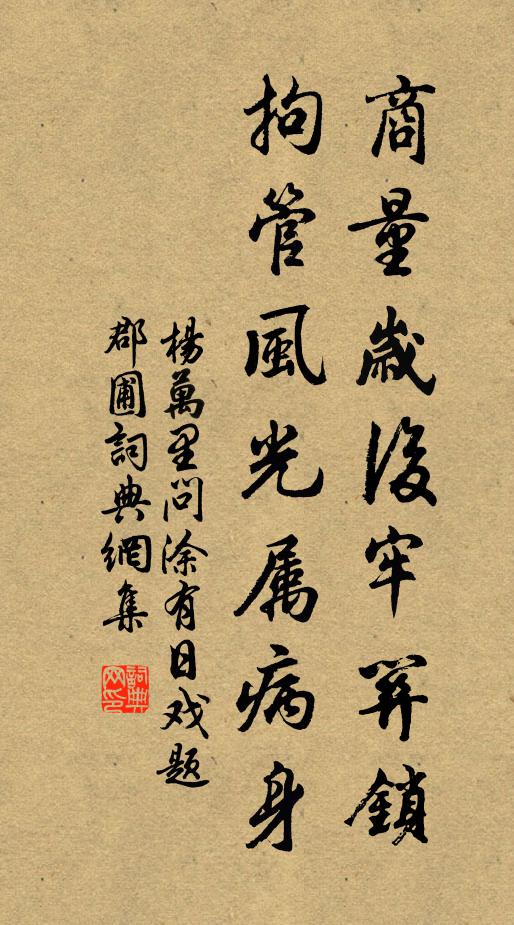 商量歲後牢關鎖
拘管風光属病身
楊萬里問涂有日戏题
郡圃詞典網集
詞典
网印